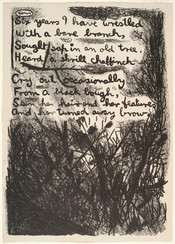 Six years I have wrestled
With a bare branch,
Sought sap in an old tree,
Heard a shrill chaffinch
Cry out occasionally
From a black bough,
Seen her hair and her features
And her turned away brow,